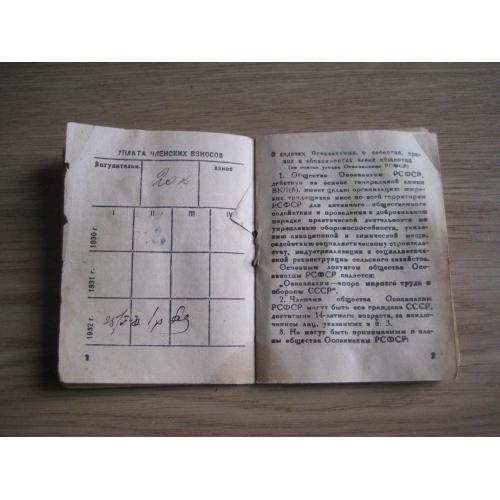 УПЛАТА ЧЛЕНСКИХ ВЗНОСОВ
Вступительн. взнос
20 к
I II III IV
1930 г.
1931 г.
1932 г.
3
О задачах Осоавиахима, о членстве, пра-
вах и обязанностях члена общества
1. Общество Осоавиахим РСФСР,
действуя на основе генеральной линии
ВКП(б), имеет целью организацию широ-
ких трудящихся масс по всей территории
РСФСР для активного общественного
содействия и проведения в добровольном
порядке практической деятельности по
укреплению обороноспособности, развитию
авиационной и химической мощи,
содействию социалистическому строительст-
ву, индустриализации и социалистиче-
ской реконструкции сельского хозяйства.
Основным лозунгом общества Осо-
авиахим РСФСР является:
"Осоавиахим—опора мирного труда и
обороны СССР".
2. Членами общества Осоавиахим
РСФСР могут быть все граждане СССР,
достигшие 14-летнего возраста, за исклю-
чением лиц, указанных в п. 3.
3. Не могут быть принимаемы в чле-
ны общества Осоавиахим РСФСР: